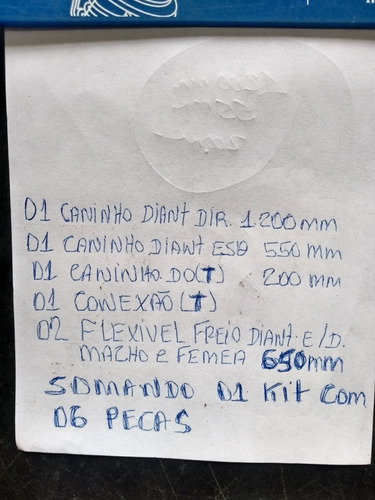 01 CANINHO DIANT DIR. 1.200mm
01 CANINHO DIANT ESQ 550mm
01 CANINHO DO(T) 200mm
01 CONEXÃO (T)
02 FLEXIVEL FREIO DIANT. E/D.
MACHO e FEMEA 650mm
SOMANDO 01 Kit com
06 PECAS